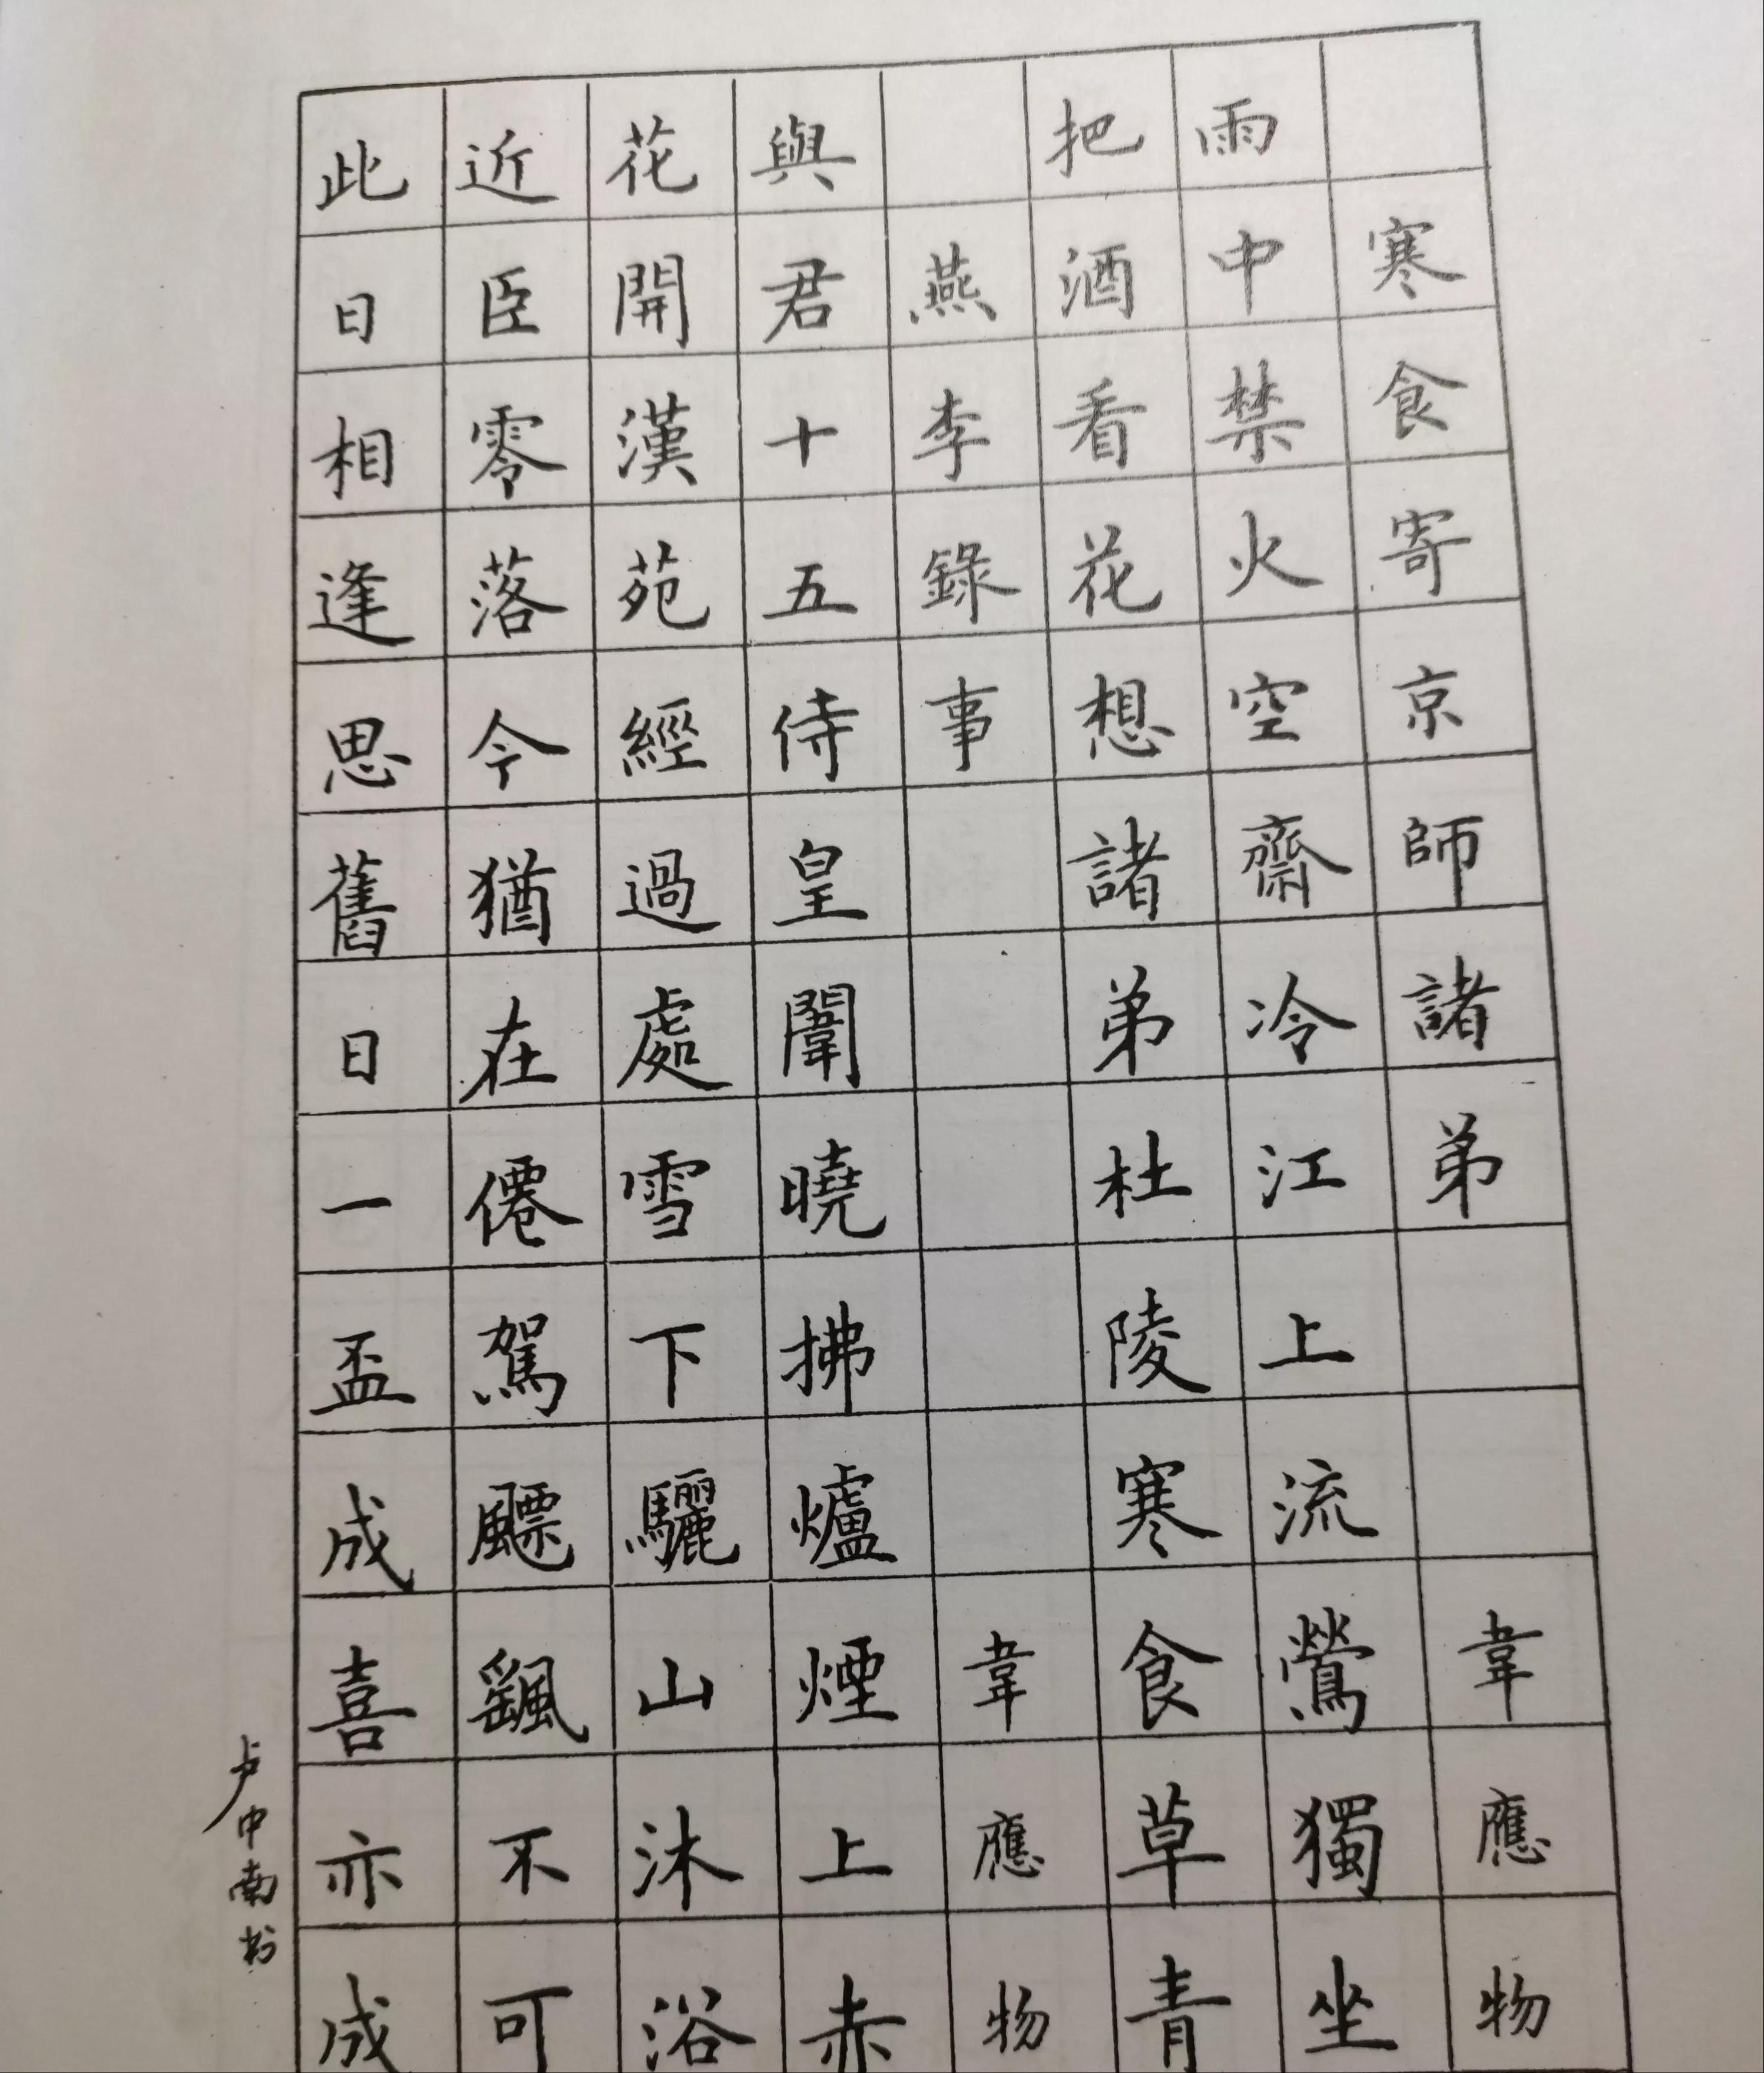 寒食寄京師諸弟 韋應物
雨中禁火空齋冷江上流鶯獨坐
把酒看花想諸弟杜陵寒食草青
燕李錄事 韋應物
與君十五侍皇闈曉拂爐煙上赤
花開漢苑經過處雪下驪山沐浴
近臣零落今猶在僊駕飃颻不可
此日相逢思舊日一盃成喜亦成
卢中南书